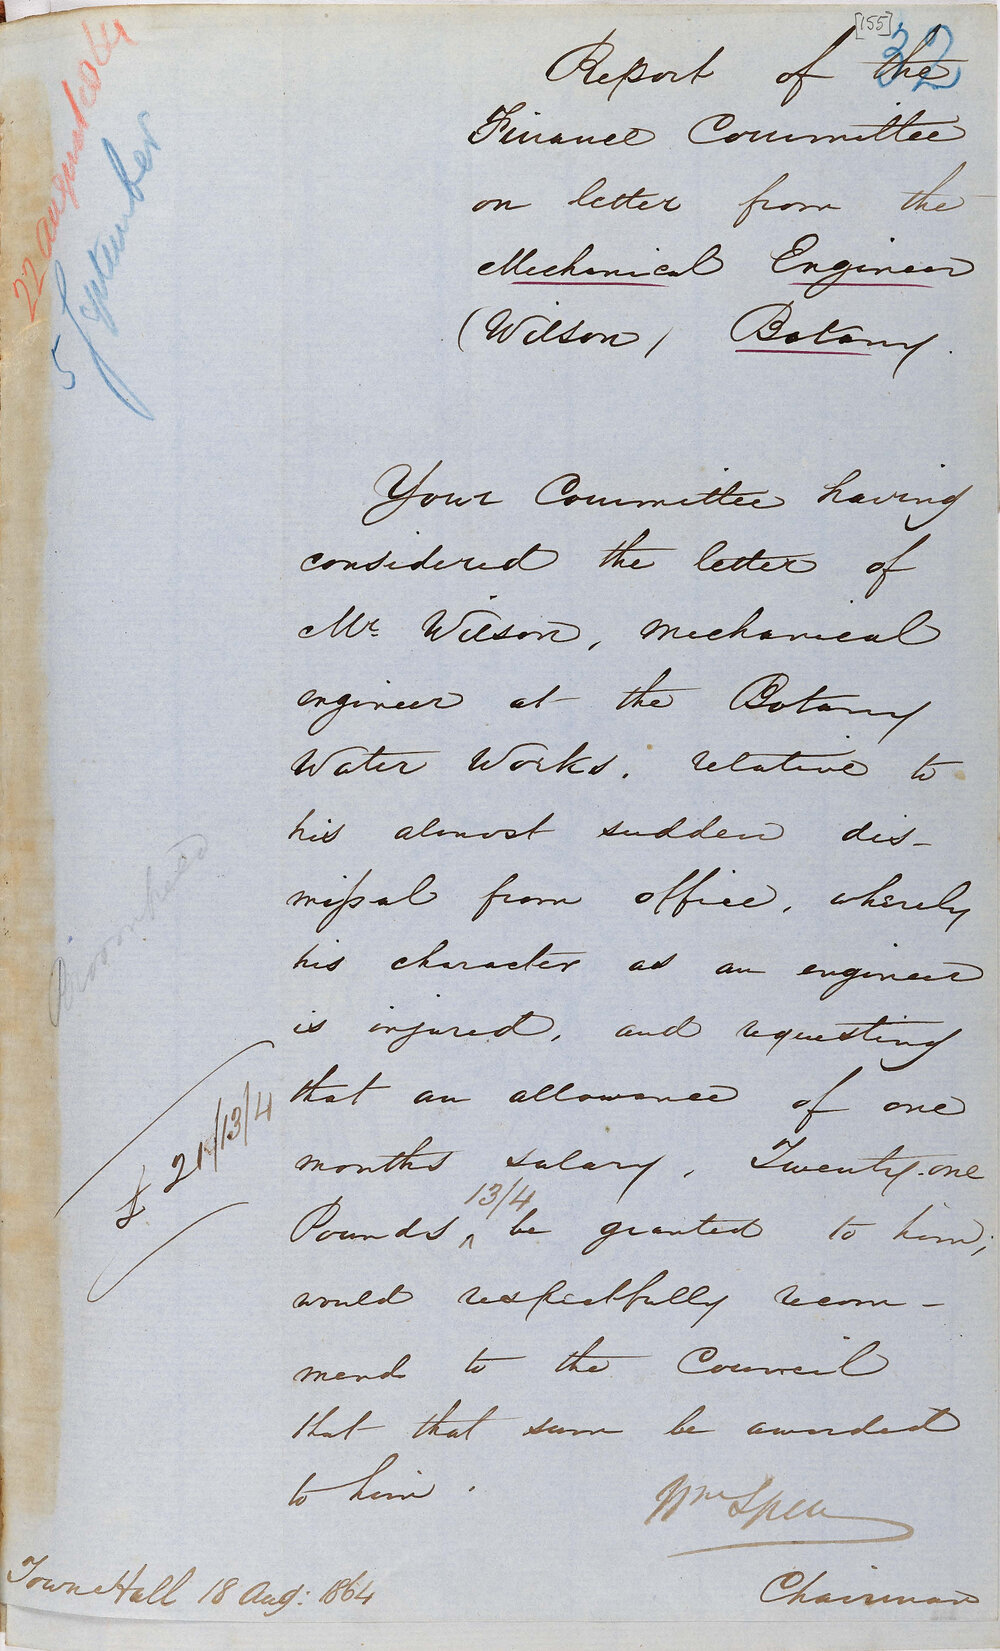 [155]
32
22 august
5 September
Report of the
Finance Committee
on letter from the
Mechanical Engineer
(Wilson) Botany.
Your Committee having
considered the letter of
Mr. Wilson, mechanical
engineer at the Botany
Water Works, relative to
his almost sudden dis-
missal from office, whereby
his character as an engineer
is injured, and requesting
that an allowance of one
months salary, Twenty-one
£21/13/4
13/4
Pounds ^ be granted to him;
would respectfully recom-
mend to the Council
that that sum be awarded
to him.
Wm Speer
Chairman
Town Hall 18 Aug: 1864